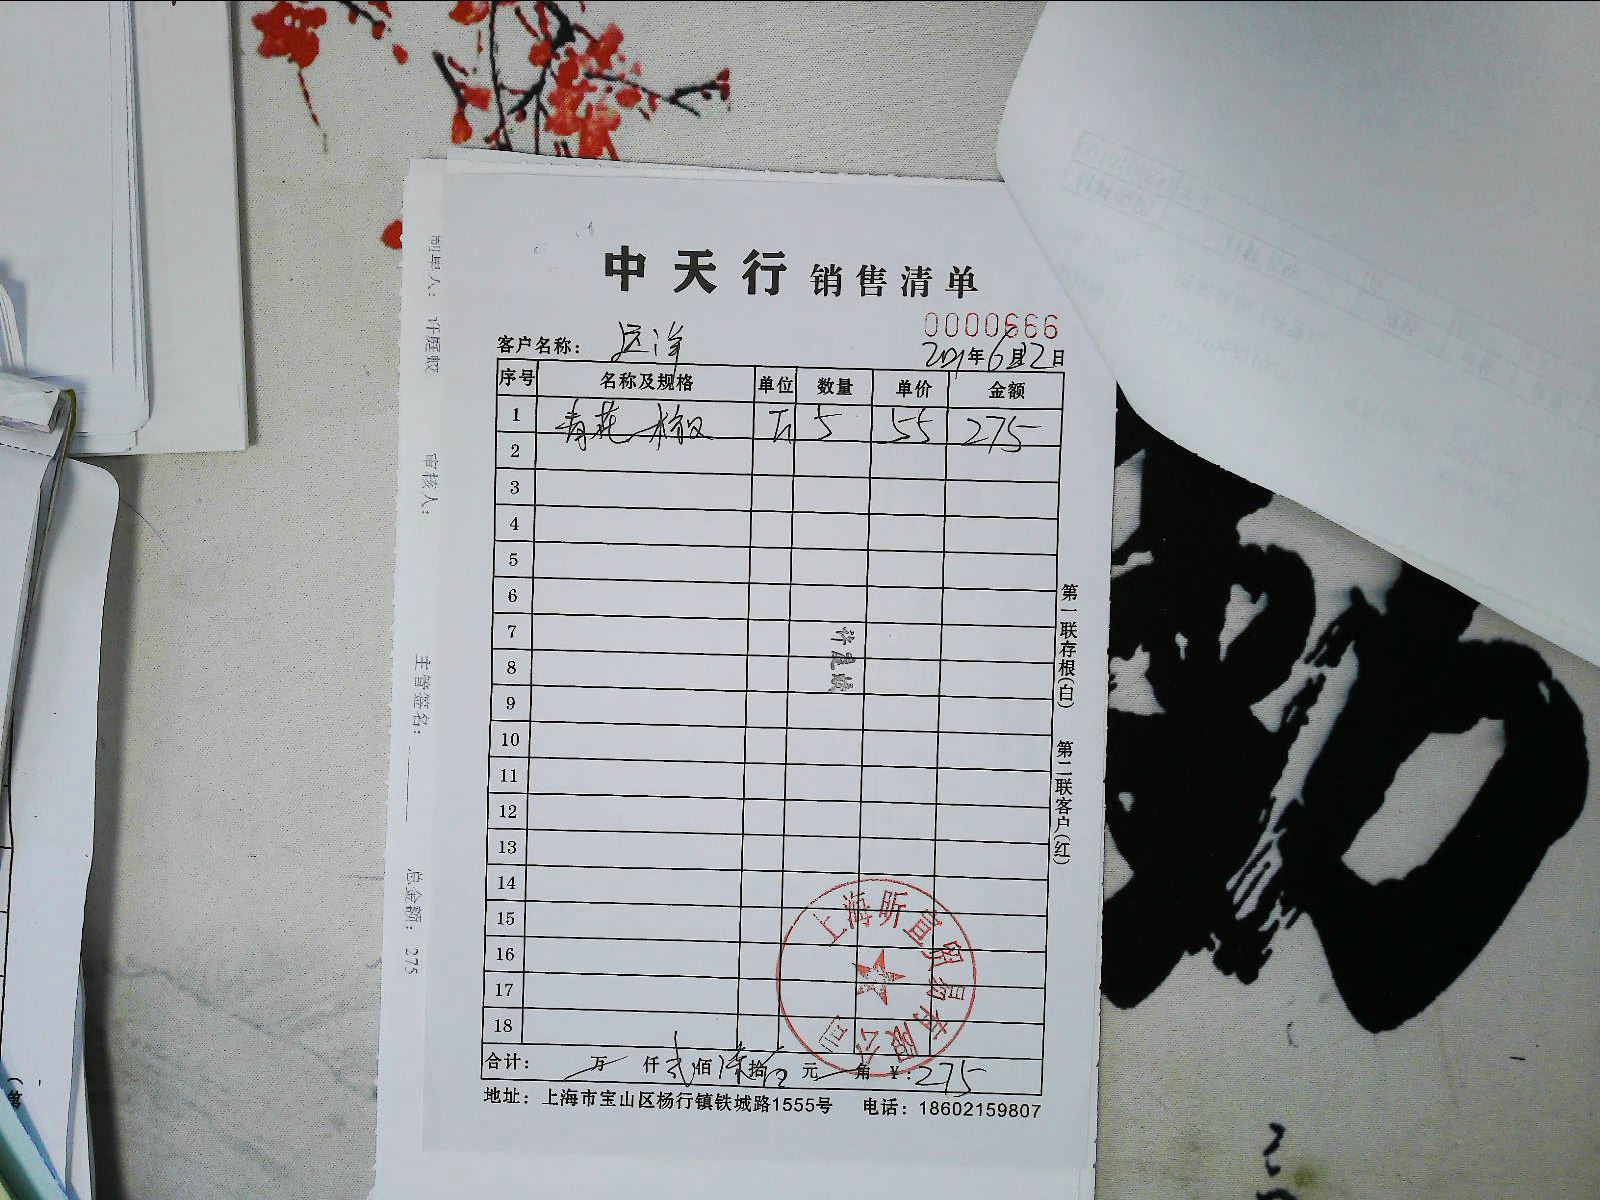 中天行 销售清单
0000666
客户名称: 远洋
2021年6月2日
序号 名称及规格 单位 数量 单价 金额
1 青花 5 55 275
2
3
4
5
6
7
8
9
10
11
12
13
14
15
16
17
18
合计: 万 仟 贰 佰 柒 拾 伍 元 角 ¥: 275
地址: 上海市宝山区杨行镇铁城路1555号 电话: 18602159807
第一联存根(白) 第二联客户(红)
上海昕宣贸易有限公司
制单人:
审核人:
主管签名:
总金额: 275